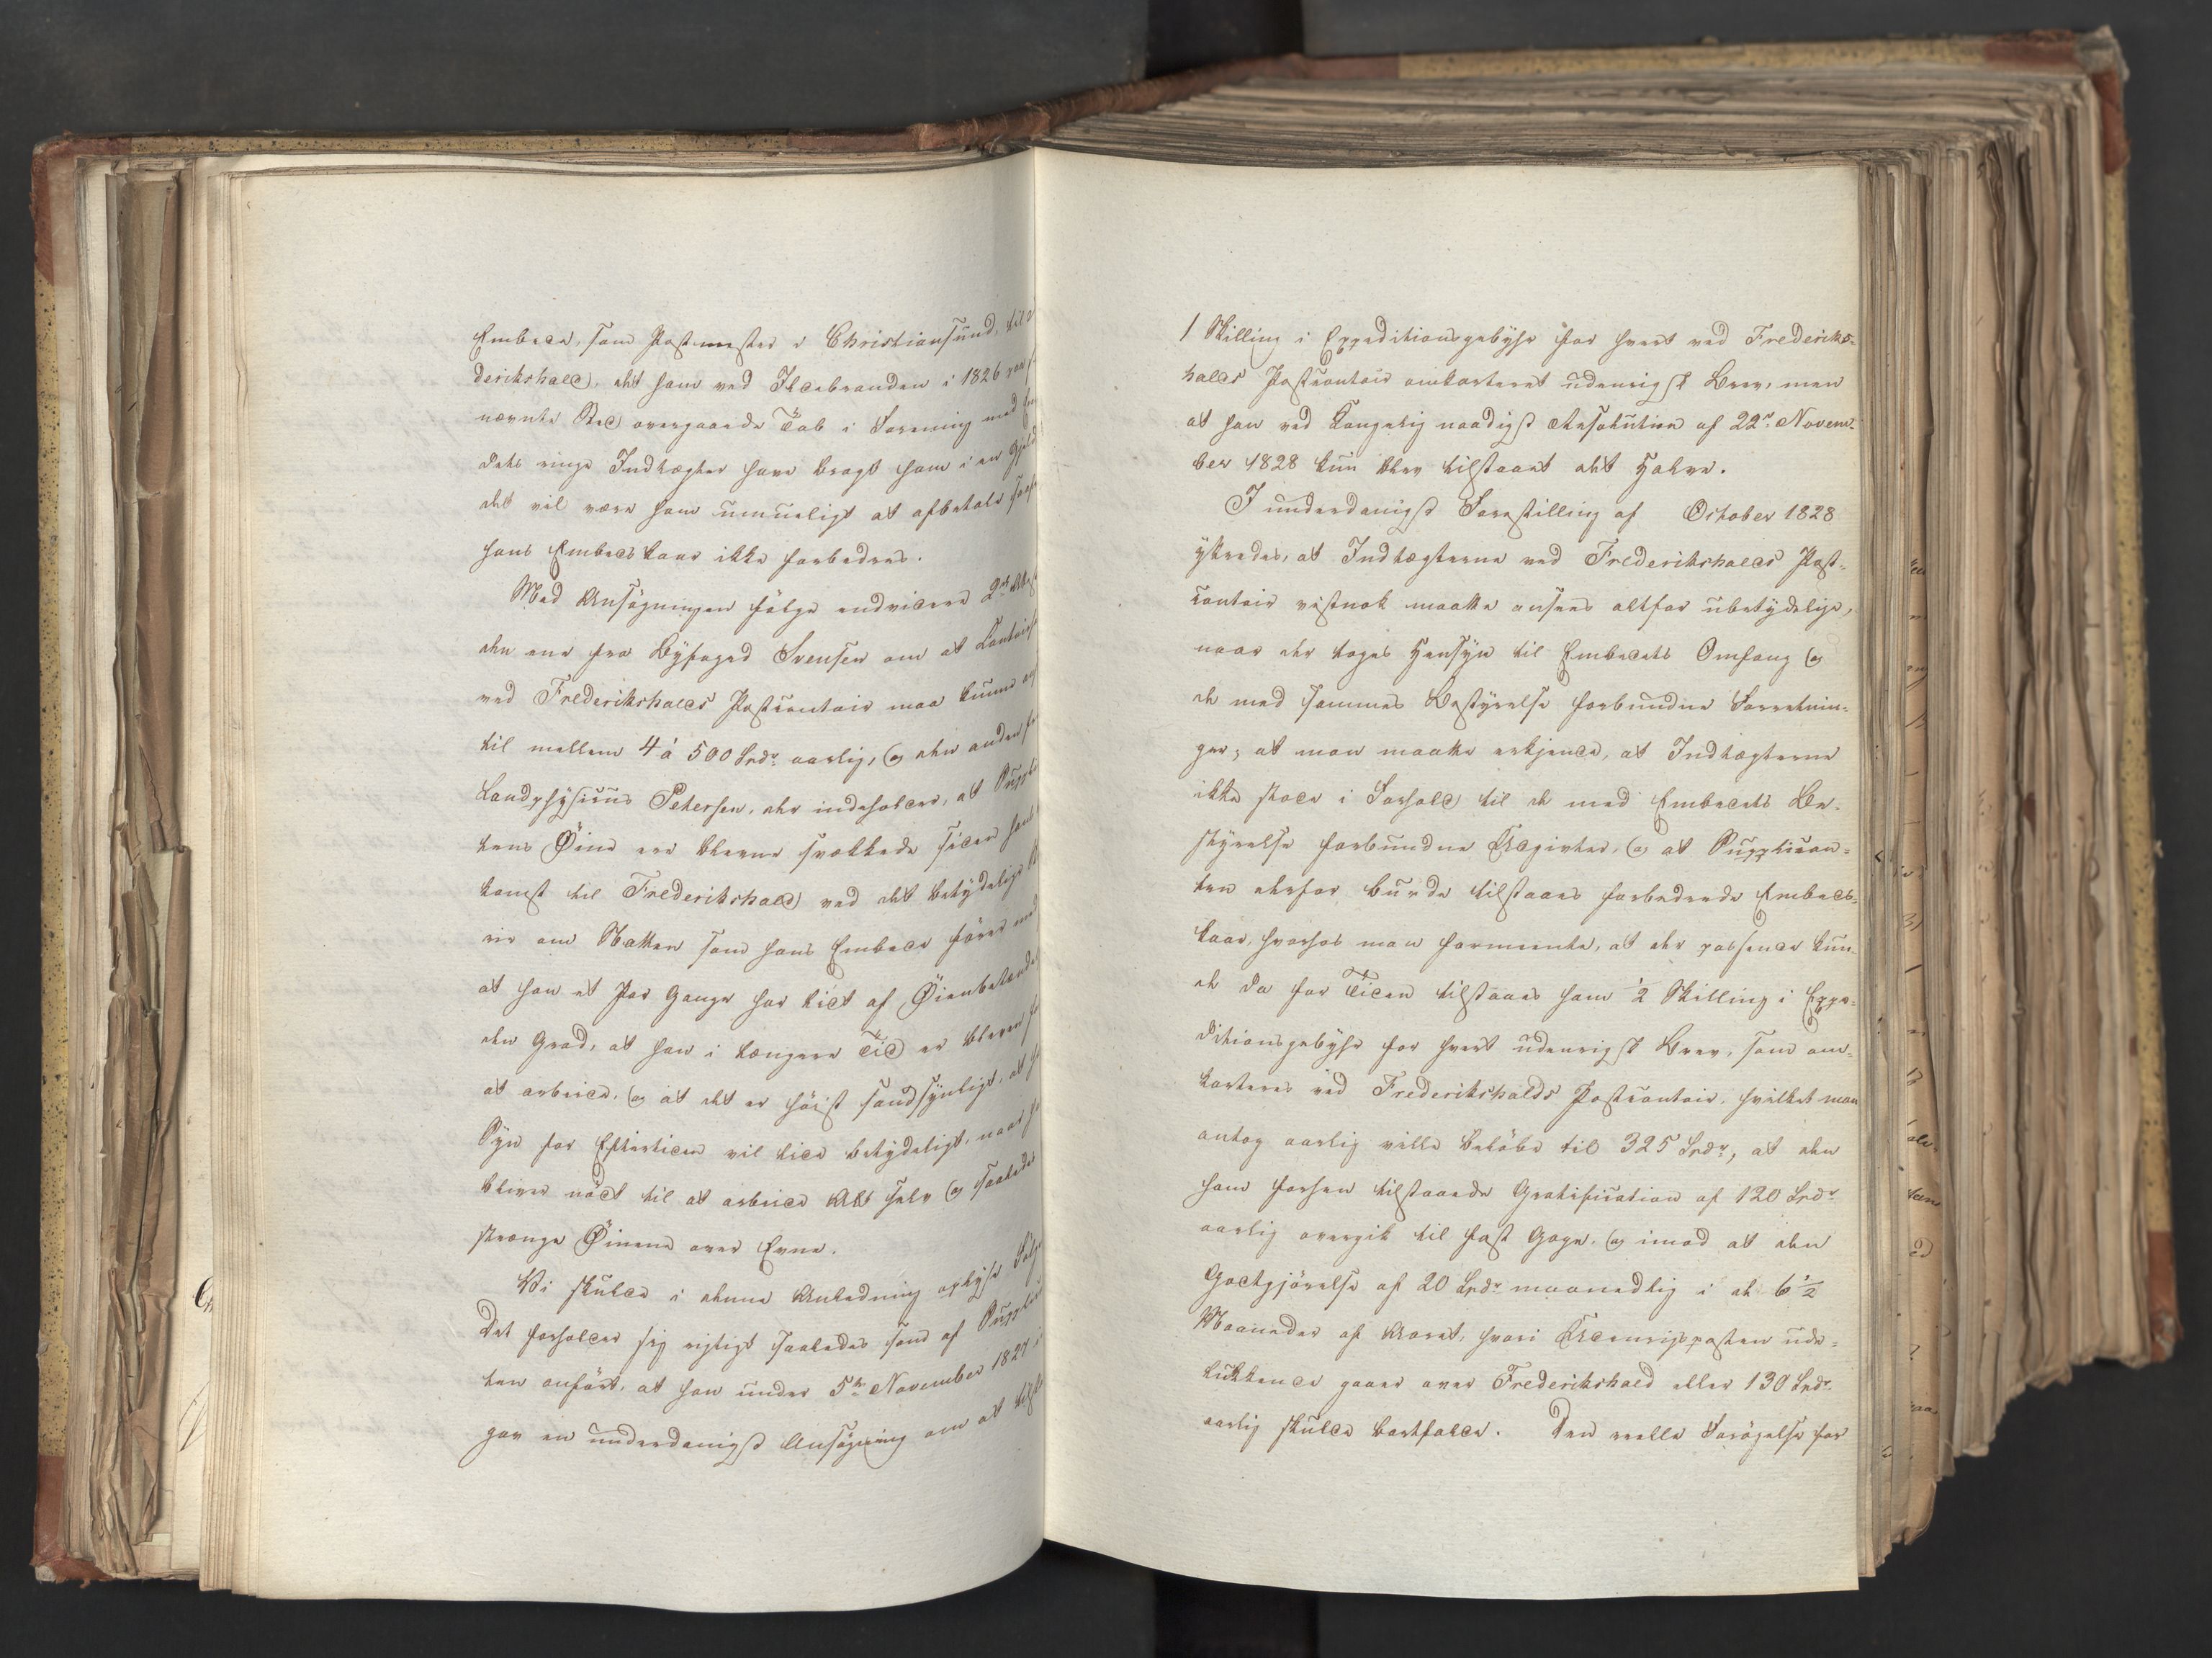 Embede, som Postmester i Christiansund, til
derikshald, det ham ved Ildebranden i 1826 paa
nævnte Sted overgaaede Tab i Forening med
dets ringe Indtægter have bragt ham i en Gjeld
det vil være ham umueligt at afbetale saa
hans Embedskaar ikke forbedres.
Med Ansøgningen følge endvidere 2de
den ene fra Byfoged Svensen om at Contoir
ved Frederikshalds Postcontoir maa kunne
til mellem 4 á 500 Spdr aarlig, og den anden
Landphysicus Petersen, der indeholder, at Suppli
tens Øine ere blevne svækkede siden hans
komst til Frederikshald ved det betydelige
rie om Natten som hans Embede fører med
at han et Par Gange har lidt af Øienbetændel
den Grad, at han i længere Tid er bleven
at arbeide, og at det er høist sandsynligt, at
Syn for Eftertiden vil lide betydeligt, naar
bliver nødt til at arbeide Alt selv og saaledes
strænge Øinene over Evne.
Vi skulde i denne Anledning oplyse Følge
Det forholder sig rigtigt saaledes som af Supplican
ten anført, at han under 5te November 1827
gav en underdanigst Ansøgning om at
1 Skilling i Expeditionsgebyhr for hvert ved Frederiks-
halds Postcontoir omkarteret udenrigsk Brev, men
at han ved Kongelig naadigst Resolution af 22de Novem-
ber 1828 kun blev tilstaaet det Halve.
I underdanigst Forestilling af October 1828
yttredes, at Indtægterne ved Frederikshalds Post-
contoir vistnok maatte ansees altfor ubetydelige,
naar der toges Hensyn til Embedets Omfang og
de med sammes Bestyrelse forbundne Forretnin-
ger; at man maatte erkjende, at Indtægterne
ikke stode i Forhold til de med Embedets Be-
styrelse forbundne Udgivter, og at Supplican-
ten derfor burde tilstaaes forbedrede Embeds-
kaar, hvorhos man formeente, at der passende kun-
de da for Tiden tilstaaes ham ½ Skilling i Expe-
ditionsgebyhr for hvert udenrigsk Brev, som om-
karteres ved Frederikshalds Postcontoir, hvilket man
antog aarlig ville beløbe til 325 Spdr, at den
ham forhen tilstaaede Gratification af 120 Spdr
aarlig overgik til fast Gage, og imod at den
Godtgjørelse af 20 Spdr maanedlig i de 6½
Maaneder af Aaret, hvori Udenrigsposten ude-
lukkende gaaer over Frederikshald eller 130 Spdr
aarlig skulde bortfalde. Den reelle Forøgelse for